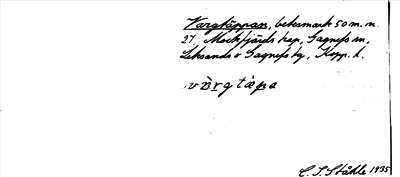 Vargtäppan, betesmark 50 m. n.
27, Mockfjärds kap., Gagnefs sn,
Leksands o Gagnefs tg, Kopp. l.
C. I. Ståhle 1935